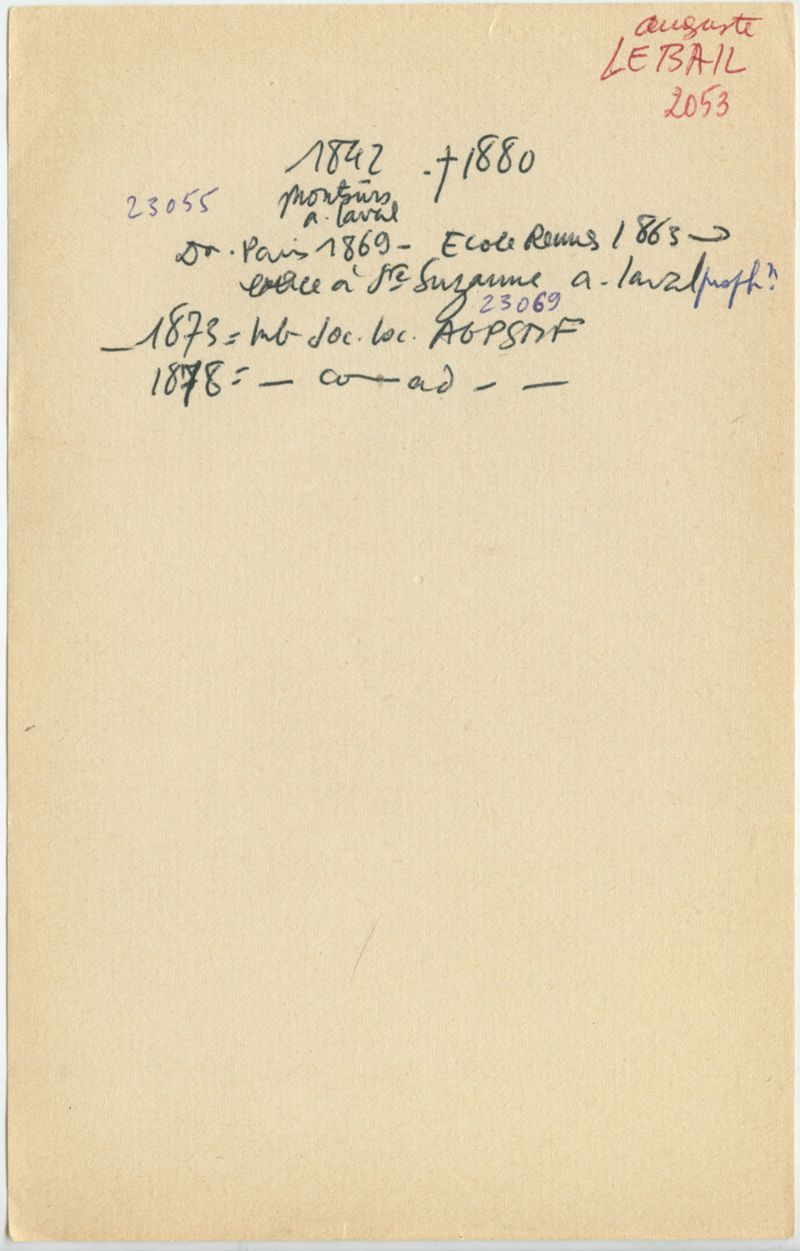 auguste
LEBAIL
2053
1842 - †1880
23055
Montsûrs
a. Laval
Dr. Paris 1869 - Ecole Rennes 1863 →
à Ste Suzanne a. Laval proph?
23069
— 1873 = mb soc. loc. AGPSMF
1878 = — — ad - —